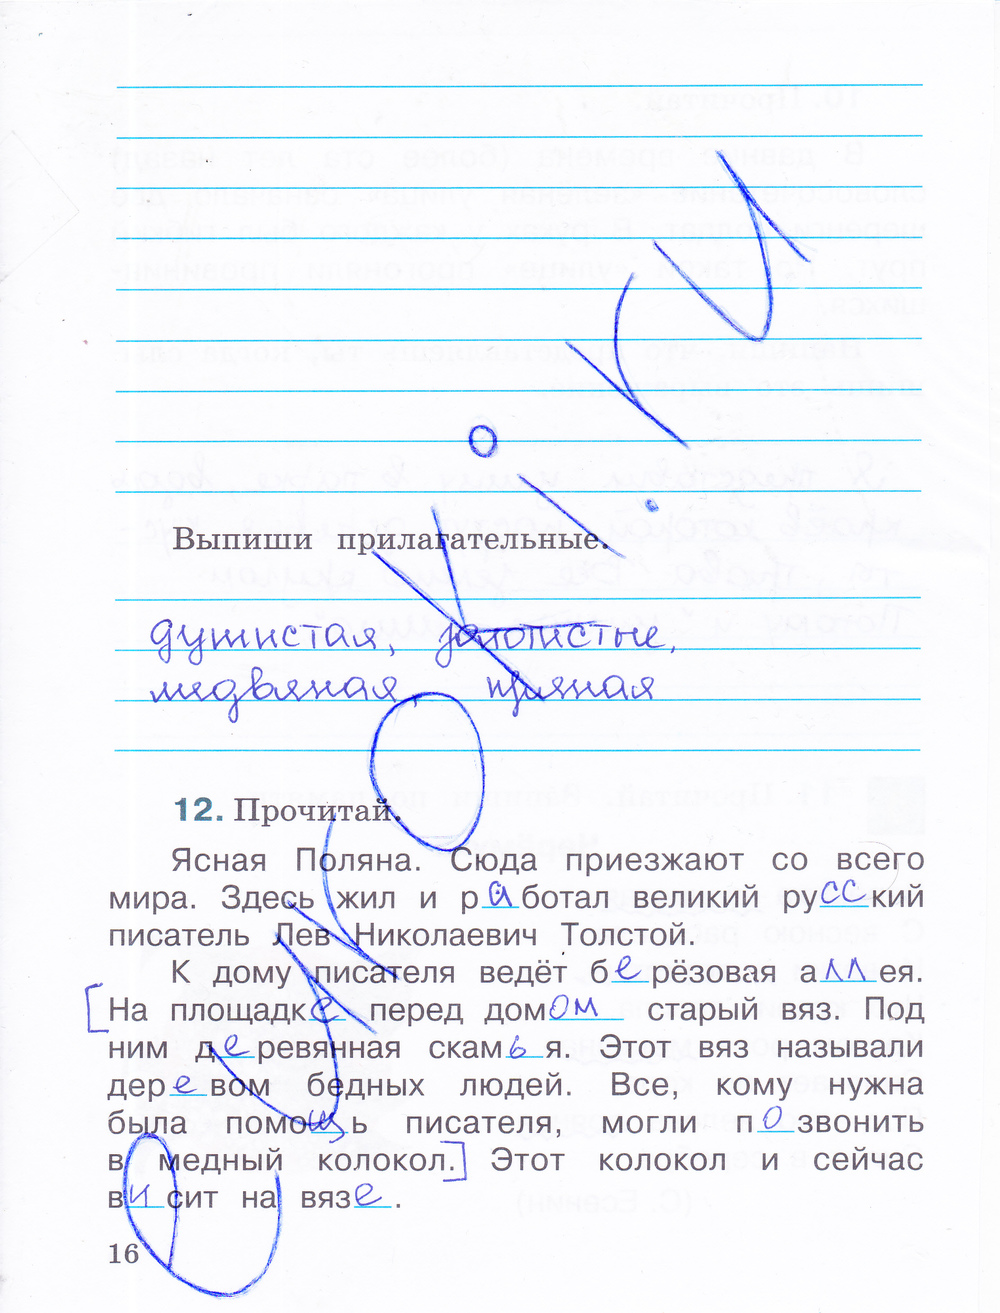 Выпиши прилагательные.
душистая, золотистые,
медвяная, пряная
12. Прочитай.
Ясная Поляна. Сюда приезжают со всего
мира. Здесь жил и работал великий русский
писатель Лев Николаевич Толстой.
К дому писателя ведёт берёзовая аллея.
[На площадке перед домом старый вяз. Под
ним деревянная скамья. Этот вяз называли
деревом бедных людей. Все, кому нужна
была помощь писателя, могли позвонить
в медный колокол.] Этот колокол и сейчас
висит на вязе.
16